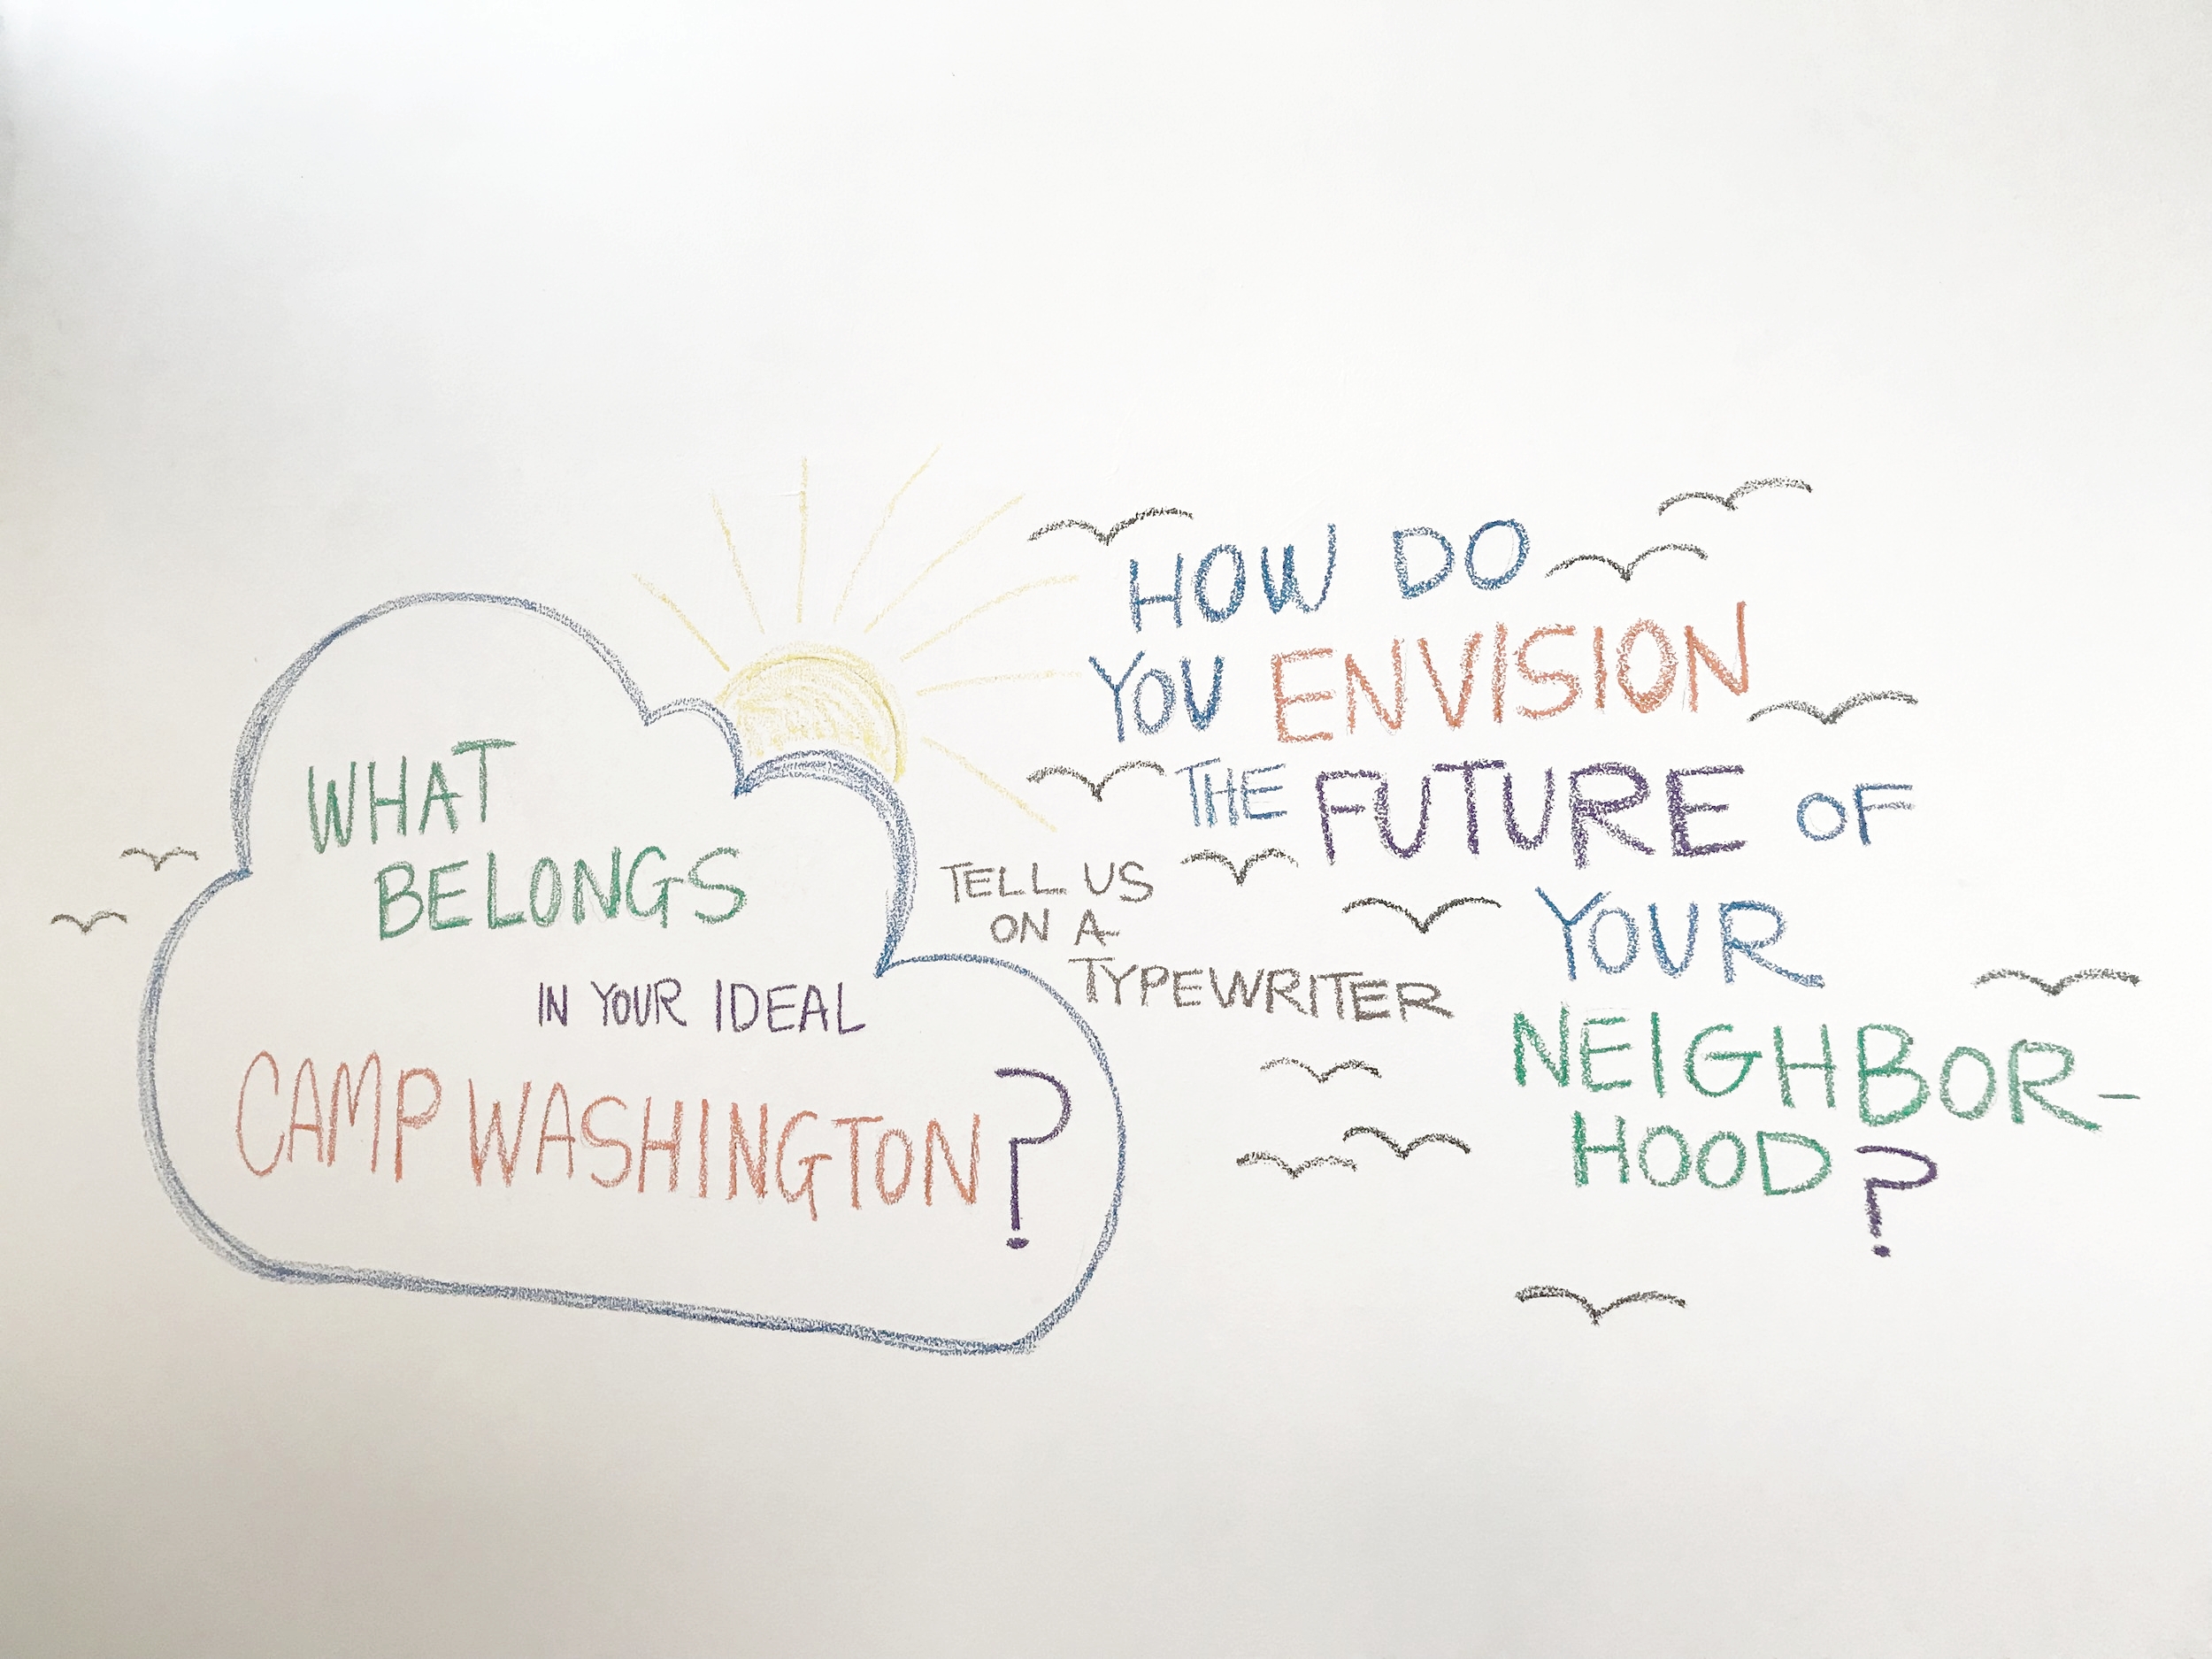 WHAT
BELONGS
IN YOUR IDEAL
CAMP WASHINGTON?
TELL US
ON A
TYPEWRITER
HOW DO
YOU ENVISION
THE FUTURE OF
YOUR
NEIGHBOR-
HOOD?